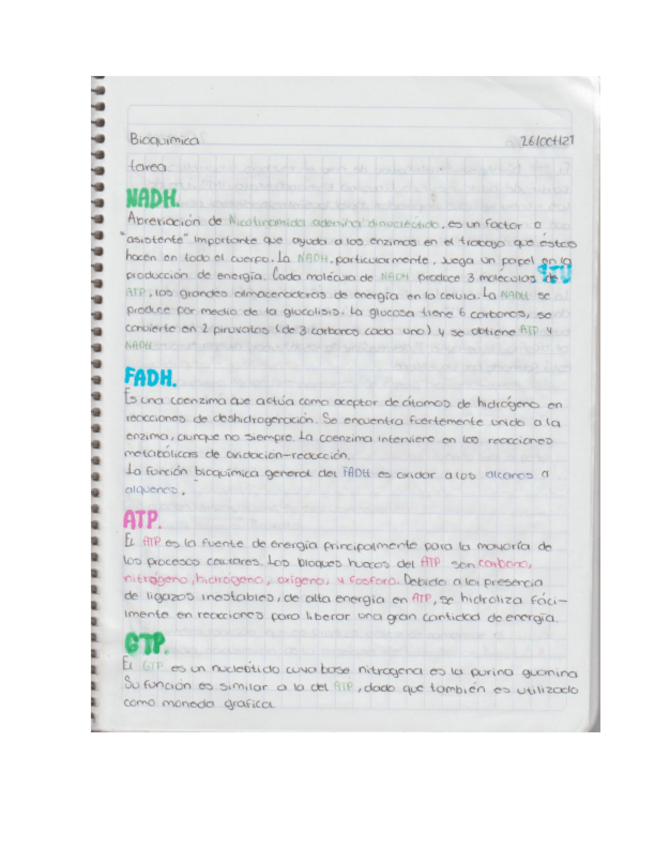 Bioquimica 26/oct/21
tarea
NADH.
Abreviación de Nicotinamida adenina dinucleótido, es un factor o
"asistente" importante que ayuda a los enzimas en el trabajo que éstas
hacen en todo el cuerpo. La NADH, particularmente, juega un papel en la
producción de energía. Cada molécula de NADH produce 3 moléculas de
ATP, los grandes almacenadoras de energía en la celula. La NADH se
produce por medio de la glucolisis. La glucosa tiene 6 carbonos, se
convierte en 2 piruvatos (de 3 carbonos cada uno) y se obtiene ATP y
NADH
FADH.
Es una coenzima que actúa como aceptor de átomos de hidrógeno en
reacciones de deshidrogenación. Se encuentra fuertemente unido a la
enzima, aunque no siempre. La coenzima interviene en las reacciones
metabólicas de oxidacion-reducción.
La función bioquímica general del FADH es oxidar a los alcanos a
alquenos.
ATP.
El ATP es la fuente de energía principalmente para la mayoría de
los procesos celulares. Los bloques huecos del ATP son carbono,
nitrógeno, hidrógeno, oxigeno, y fosforo. Debido a la presencia
de ligazos inestables, de alta energía en ATP, se hidroliza fáci-
lmente en reacciones para liberar una gran cantidad de energía.
GTP.
El GTP es un nucleótido cuya base nitrogena es la purina guanina
Su función es similar a la del ATP, dado que también es utilizado
como moneda grafica